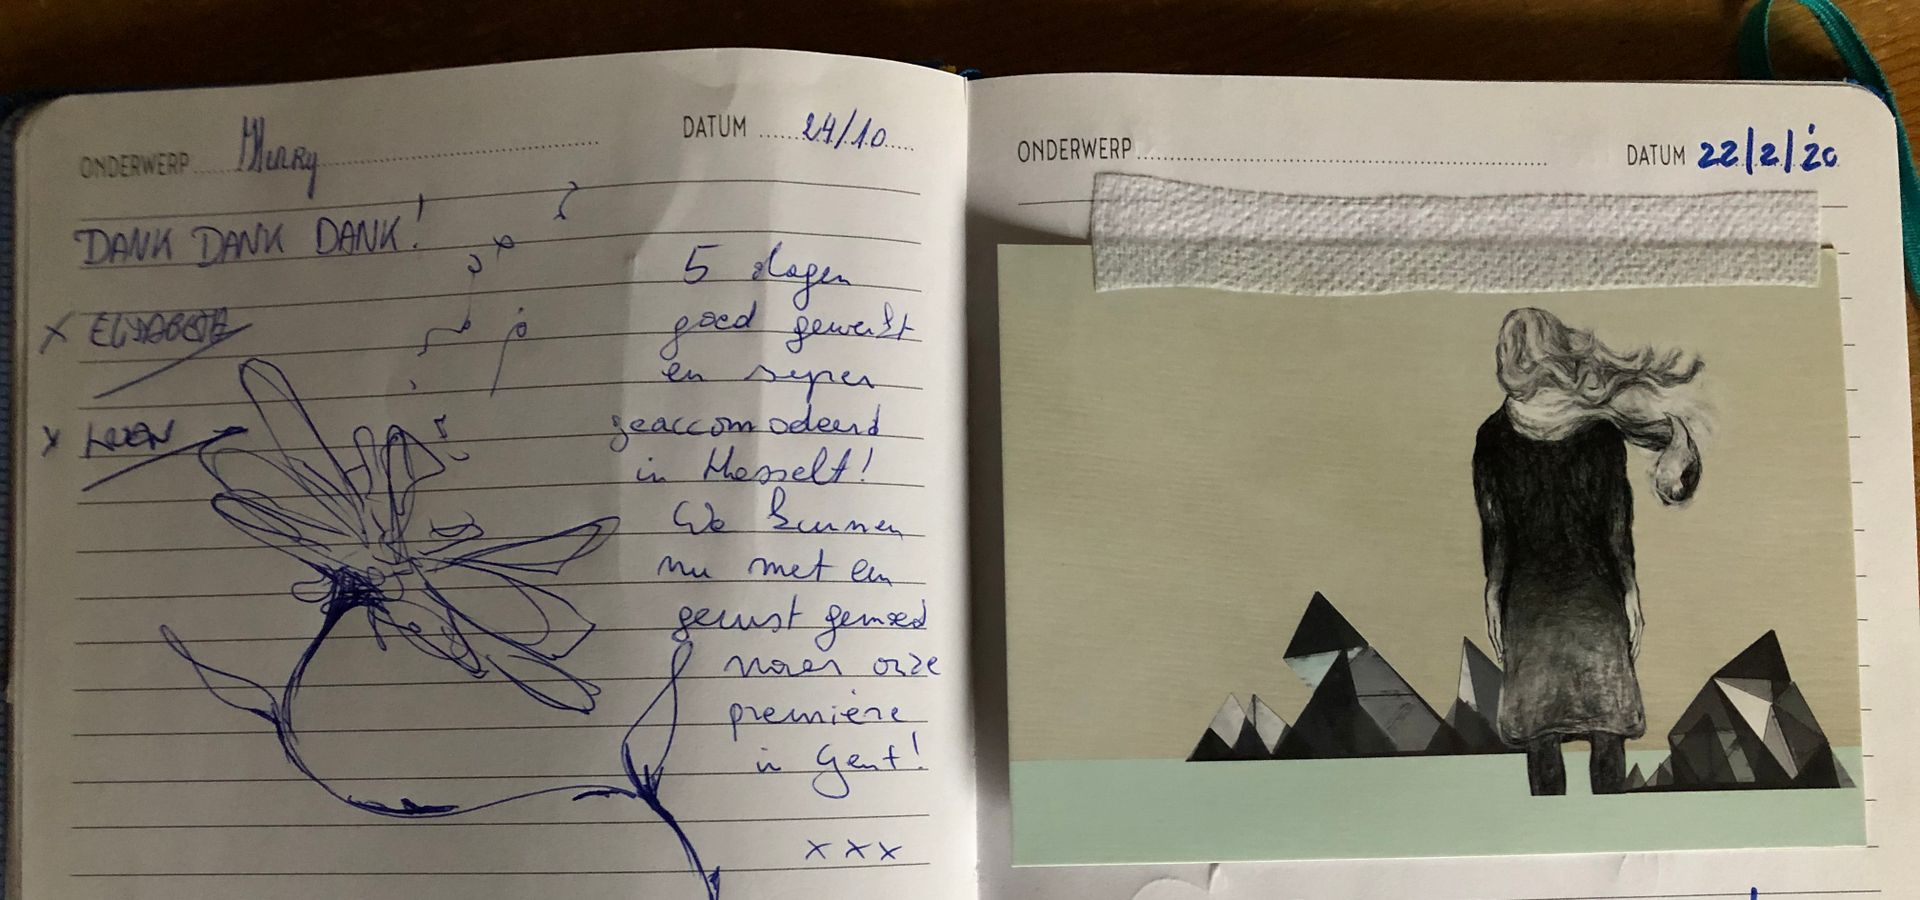 ONDERWERP
DATUM 24/10
DANK DANK DANK!
x ELISABETH
x
5 dagen
goed gewerkt
en super
geaccomodeerd
in Hasselt!
We kunnen
nu met een
gerust gemoed
naar onze
première
in Gent!
x x x
ONDERWERP
DATUM 22/2/'20